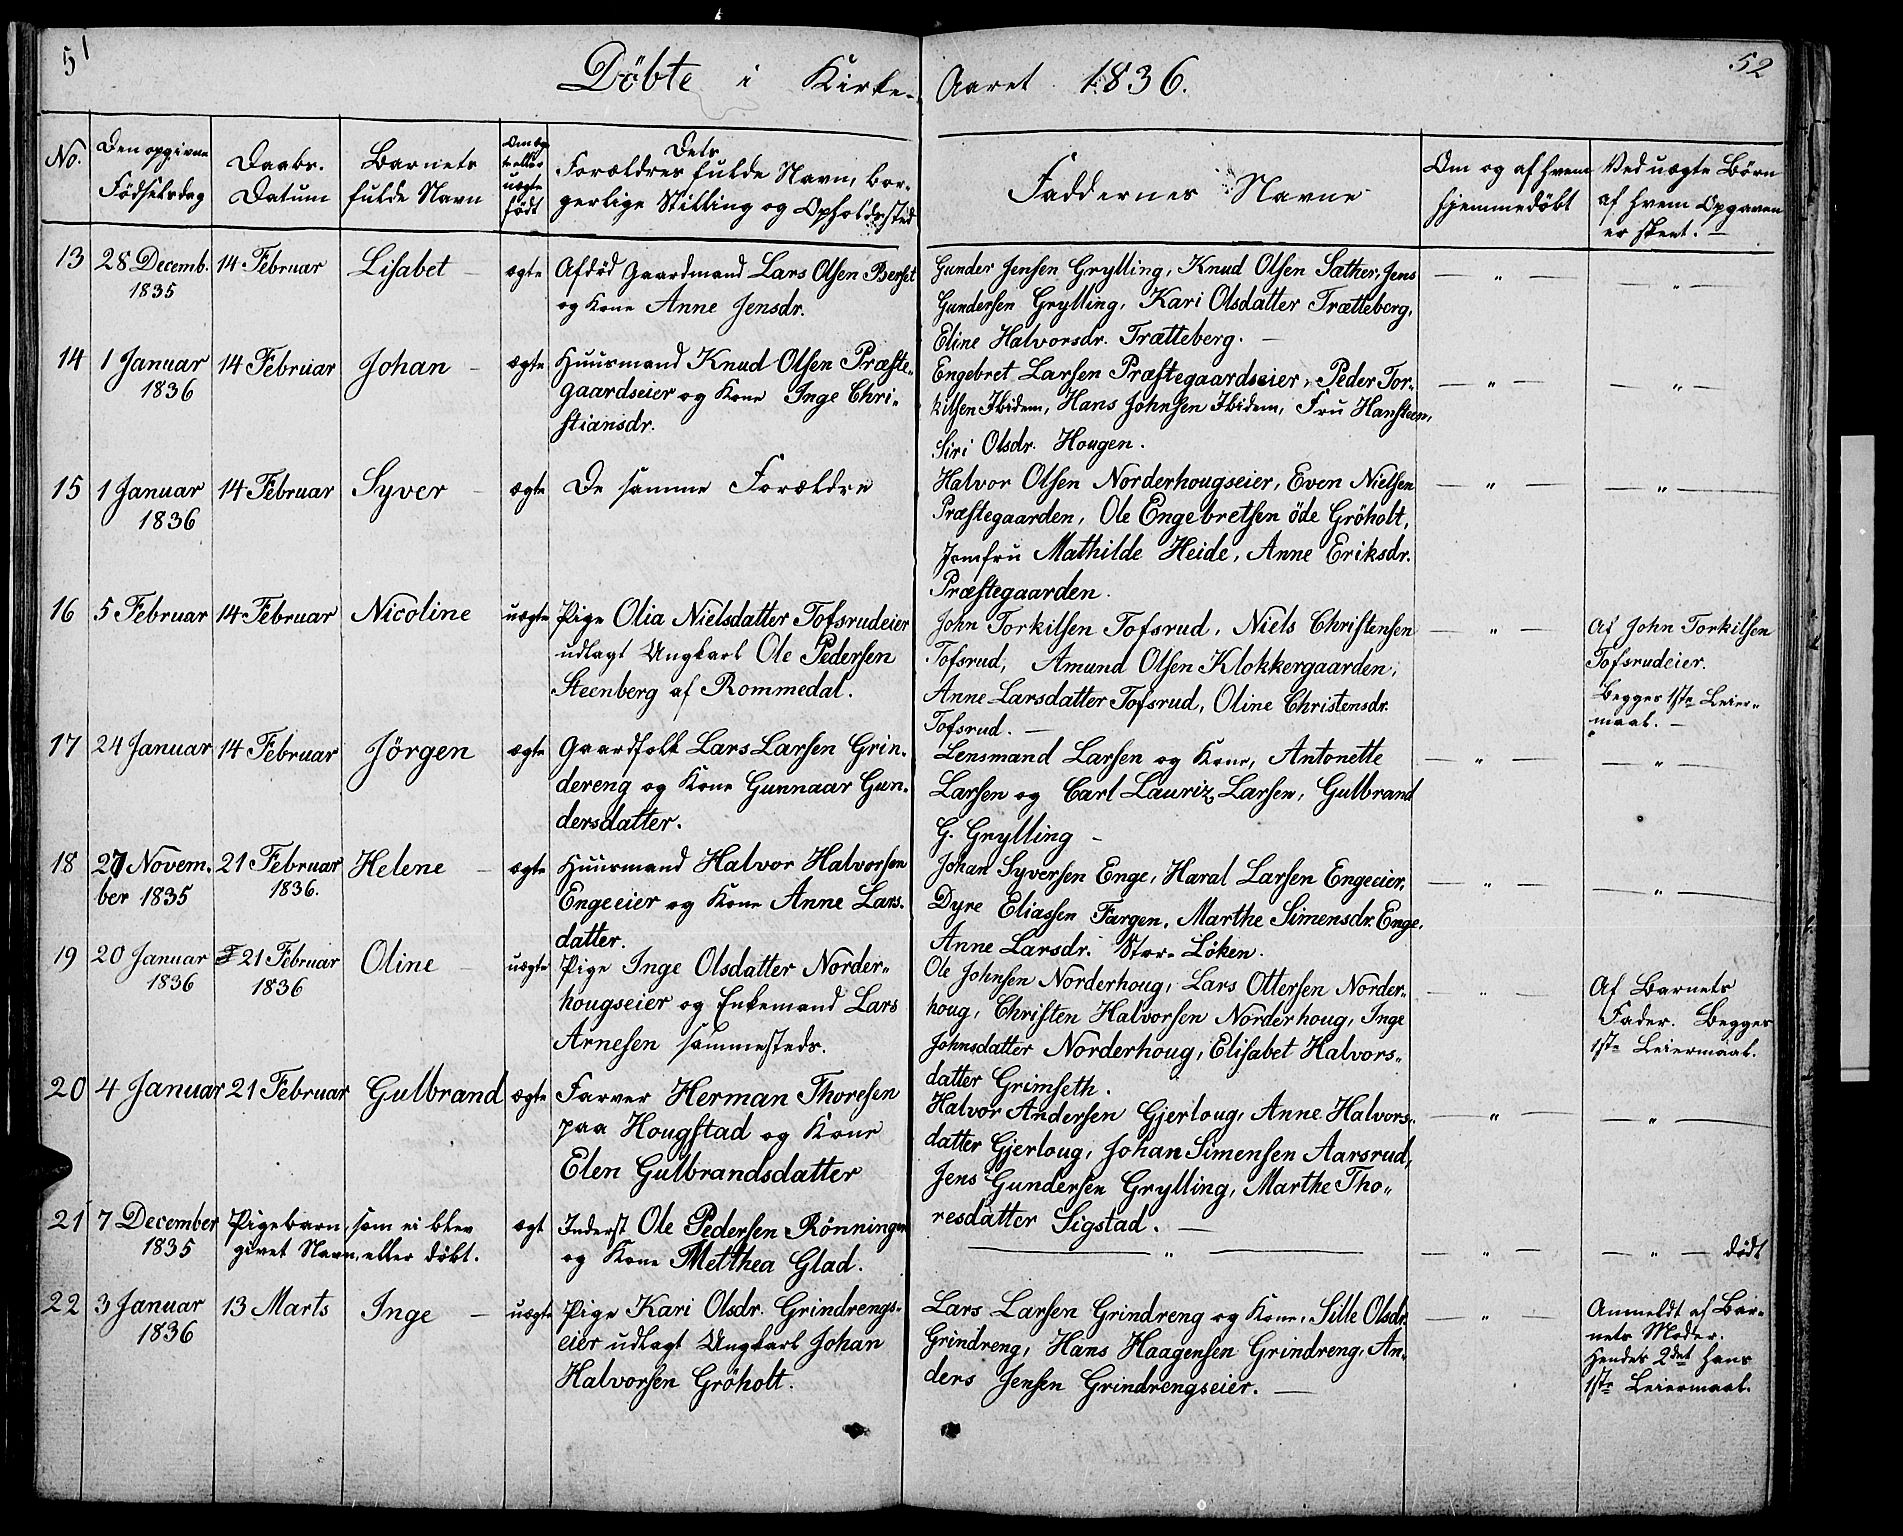 51
52
Döbte i Kirke-
Aaret 1836.
No.
Den opgivne
Födselsdag
Daabs.
Datum
Barnets
fulde Navn
Om æg-
te eller
uægte
födt
Dets
Forældres fulde Navn, bor-
gerlige Stilling og Opholdssted
Faddernes Navne
Om og af hvem
hjemmedöbt
Ved uægte Börn
af hvem Opgaven
er skeet. -
13 28 Decemb. 14 Februar Lisabet - ægte Afdöd Gaardmand Lars Olsen Berset
1835 og Kone Anne Jensdr.
Gunder Jensen Grylling, Knud Olsen Sæther, Jens — „ — — „ —
Gundersen Grylling, Kari Olsdatter Trætteberg,
Eline Halvorsdr. Trætteberg. —
14 1 Januar 14 Februar Johan - ægte Huusmand Knud Olsen Præste-
1836 gaardseier og Kone Inge Chri-
stiansdr.
Engebret Larsen Præstegaardseier, Peder Tor- — „ — — „ —
kilsen Ibidem, Hans Johnsen Ibidem, Fru Hansteen,
Siri Olsdr. Hougen.
15 1 Januar 14 Februar Syver - ægte De samme Forældre
1836
Halvor Olsen Norderhougseier, Even Nielsen — „ — — „ —
Præstegaarden, Ole Engebretsen öde Gröholt,
Jomfru Mathilde Heide, Anne Eriksdr.
Præstegaarden.
16 5 Februar 14 Februar Nicoline uægte Pige Olia Nielsdatter Tofsrudeier
udlagt Ungkarl Ole Pedersen
Steenberg af Rommedal.
John Torkilsen Tofsrud, Niels Christensen — „ — Af John Torkilsen
Tofsrud, Amund Olsen Klokkergaarden, Tofsrudeier.
Anne Larsdatter Tofsrud, Oline Christensdr. Begges 1ste Leier-
Tofsrud. — maal. —
17 24 Januar 14 Februar Jörgen ægte Gaardfolk Lars Larsen Grin-
dereng og Kone Gunnaar Gun-
dersdatter.
Lensmand Larsen og Kone, Antonette — „ — — „ —
Larsen og Carl Lauriz Larsen, Gulbrand
G. Grylling -
18 27 Novem- 21 Februar Helene - ægte Huusmand Halvor Halvorsen
ber 1835 1836. Engeeier og Kone Anne Lars-
datter.
Johan Syversen Enge, Haral Larsen Engeeier, — „ — — „ —
Dyre Eliassen Færgen, Marthe Simensdr. Enge,
Anne Larsdr. Stor-Löken.
19 20 Januar 21 Februar Oline - uægte Pige Inge Olsdatter Norder-
1836 1836 hougseier og Enkemand Lars
Arnesen sammesteds.
Ole Johnsen Norderhoug, Lars Ottersen Norder- — „ — Af Barnets
houg, Christen Halvorsen Norderhoug, Inge Fader. Begges
Johnsdatter Norderhoug, Elisabet Halvors- 1ste Leiermaal.
datter Grimseth.
20 4 Januar 21 Februar Gulbrand ægte Farver Herman Thoresen
paa Hougstad og Kone
Elen Gulbrandsdatter
Halvor Andersen Gjerloug, Anne Halvors- — „ — — „ —
datter Gjerloug, Johan Simensen Aarsrud,
Jens Gundersen Grylling, Marthe Tho-
resdatter Sigstad. —
21 7 December Pigebarn, som ei blev ægt Inderst Ole Pedersen Rönningen
1835 givet Navn, eller döbt. og Kone Metthea Glad.
— „ — — „ — — „ — dödt
22 3 Januar 13 Marts Inge - uægte Pige Kari Olsdr. Grindrengs-
1836 eier udlagt Ungkarl Johan
Halvorsen Gröholt.
Lars Larsen Grindreng og Kone, Sille Olsdr. — „ — Anmeldt af Bar-
Grindreng, Hans Haagensen Grindreng, An- nets Moder.
ders Jensen Grindrengseier. — Hendes 2det hans
1ste Leiermaal.